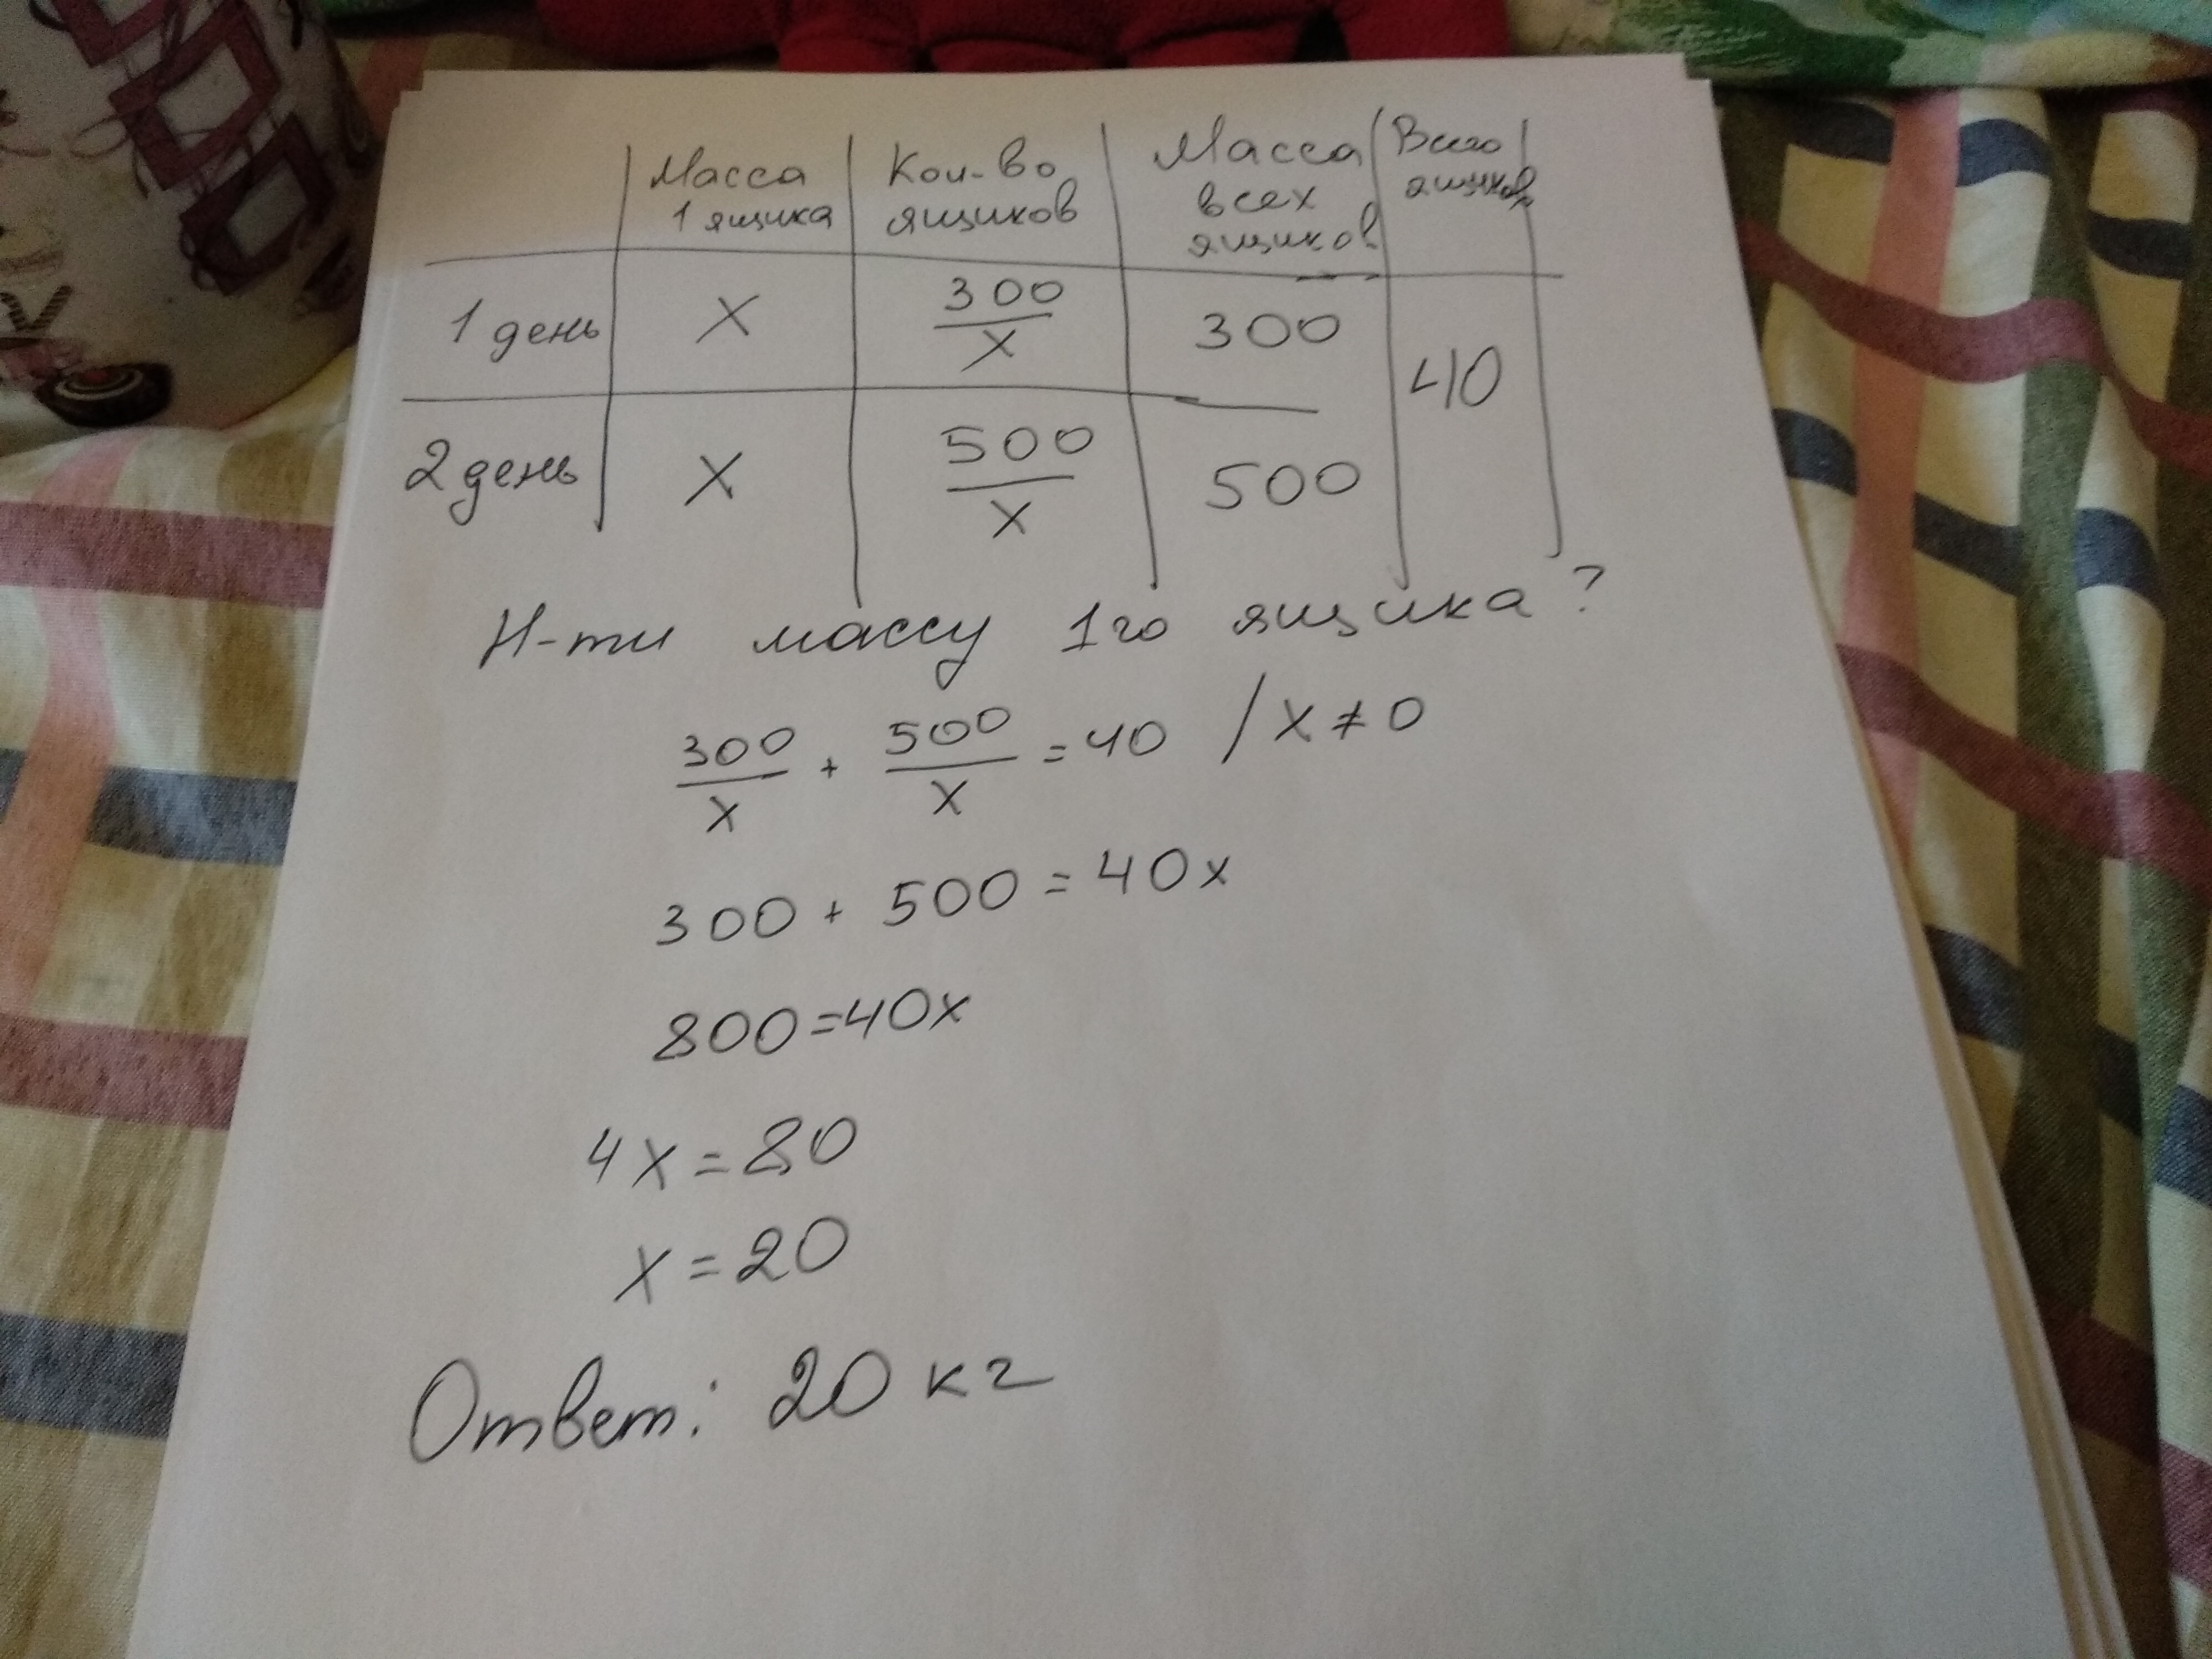 Масса Кол-во Масса Всего
1 ящика ящиков всех ящиков
ящиков
1 день X 300/X 300
40
2 день X 500/X 500
Н-ти массу 1го ящика?
300/X + 500/X = 40 / X ≠ 0
300 + 500 = 40x
800=40x
4x=80
x=20
Ответ: 20 кг